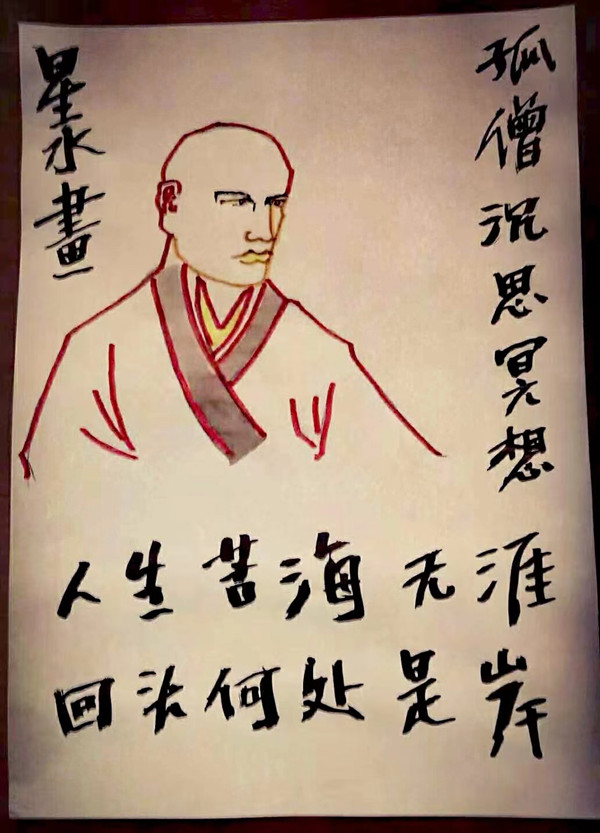 孤僧沉思冥想
星水畫
人生苦海无涯
回头何处是岸